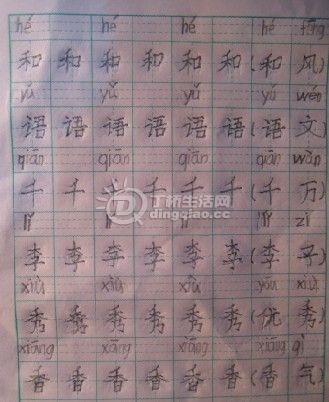 hé hé hé hé fēng
和 和 和 和 和 和 (和 风)
yǔ yǔ yǔ yǔ wén
语 语 语 语 语 语 (语 文)
qiān qiān qiān qiān wàn
千 千 千 千 千 千 (千 万)
丁桥生活网
dingqiao.cc
lǐ lǐ lǐ lǐ zǐ
李 李 李 李 李 李 (李 子)
xiù xiù xiù yōu xiù
秀 秀 秀 秀 秀 (优 秀)
xiāng xiāng xiāng xiāng qì
香 香 香 香 香 香 (香 气)